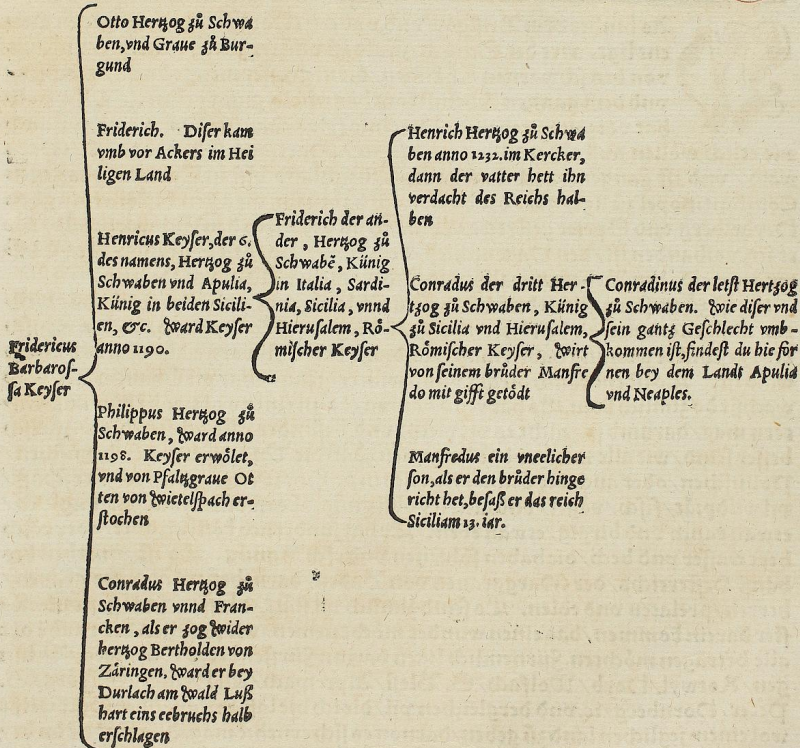 Fridericus
Barbaros-
sa Keyser
Otto Hertzog zů Schwa
ben, vnd Graue zů Bur-
gund
Friderich. Diser kam
vmb vor Ackers im Hei
ligen Land
Henricus Keyser, der 6.
des namens, Hertzog zů
Schwaben vnd Apulia,
Künig in beiden Sicili-
en, &c. ward Keyser
anno 1190.
Philippus Hertzog zů
Schwaben, ward anno
1198. Keyser erwölet,
vnd von Pfaltzgraue Ot
ten von wietelspach er-
stochen
Conradus Hertzog zů
Schwaben vnnd Fran-
cken, als er zog wider
hertzog Bertholden von
Zäringen, ward er bey
Durlach am wald Luß
hart eins eebruchs halb
erschlagen
Friderich der an-
der, Hertzog zů
Schwabē, Künig
in Italia, Sardi-
nia, Sicilia, vnnd
Hierusalem, Rö-
mischer Keyser
Henrich Hertzog zů Schwa
ben anno 1232. im Kercker,
dann der vatter hett ihn
verdacht des Reichs hal-
ben
Conradus der dritt Her-
tzog zů Schwaben, Künig
zů Sicilia vnd Hierusalem,
Römischer Keyser, wirt
von seinem brůder Manfre
do mit gifft getödt
Manfredus ein vneelicher
son, als er den brůder hinge
richt het, besaß er das reich
Siciliam 13. iar.
Conradinus der letst Hertzog
zů Schwaben. Wie diser vnd
sein gantz Geschlecht vmb-
kommen ist, findest du hie for
nen bey dem Landt Apulia
vnd Neaples.